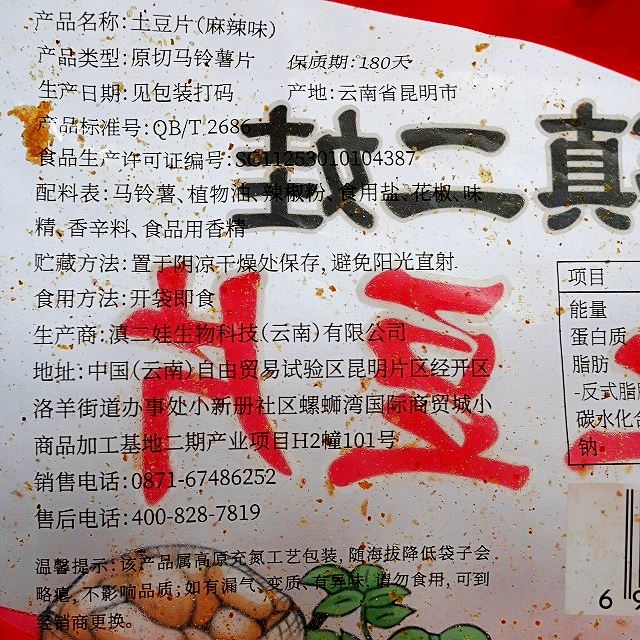 产品名称:土豆片(麻辣味)
产品类型:原切马铃薯片 保质期:180天
生产日期:见包装打码 产地:云南省昆明市
产品标准号:QB/T 2686
食品生产许可证编号:SC11253010104387
配料表:马铃薯、植物油、辣椒粉、食用盐、花椒、味
精、香辛料、食品用香精
贮藏方法:置于阴凉干燥处保存,避免阳光直射
食用方法:开袋即食
生产商:滇二娃生物科技(云南)有限公司
地址:中国(云南)自由贸易试验区昆明片区经开区
洛羊街道办事处小新册社区螺蛳湾国际商贸城小
商品加工基地二期产业项目H2幢101号
销售电话:0871-67486252
售后电话:400-828-7819
温馨提示:该产品属高原充氮工艺包装,随海拔降低袋子会
略瘪,不影响品质;如有漏气、变质、有异味,请勿食用,可到
经销商更换。
真二娃
豆片
项目
能量
蛋白质
脂肪
-反式脂
碳水化合
钠
6 9